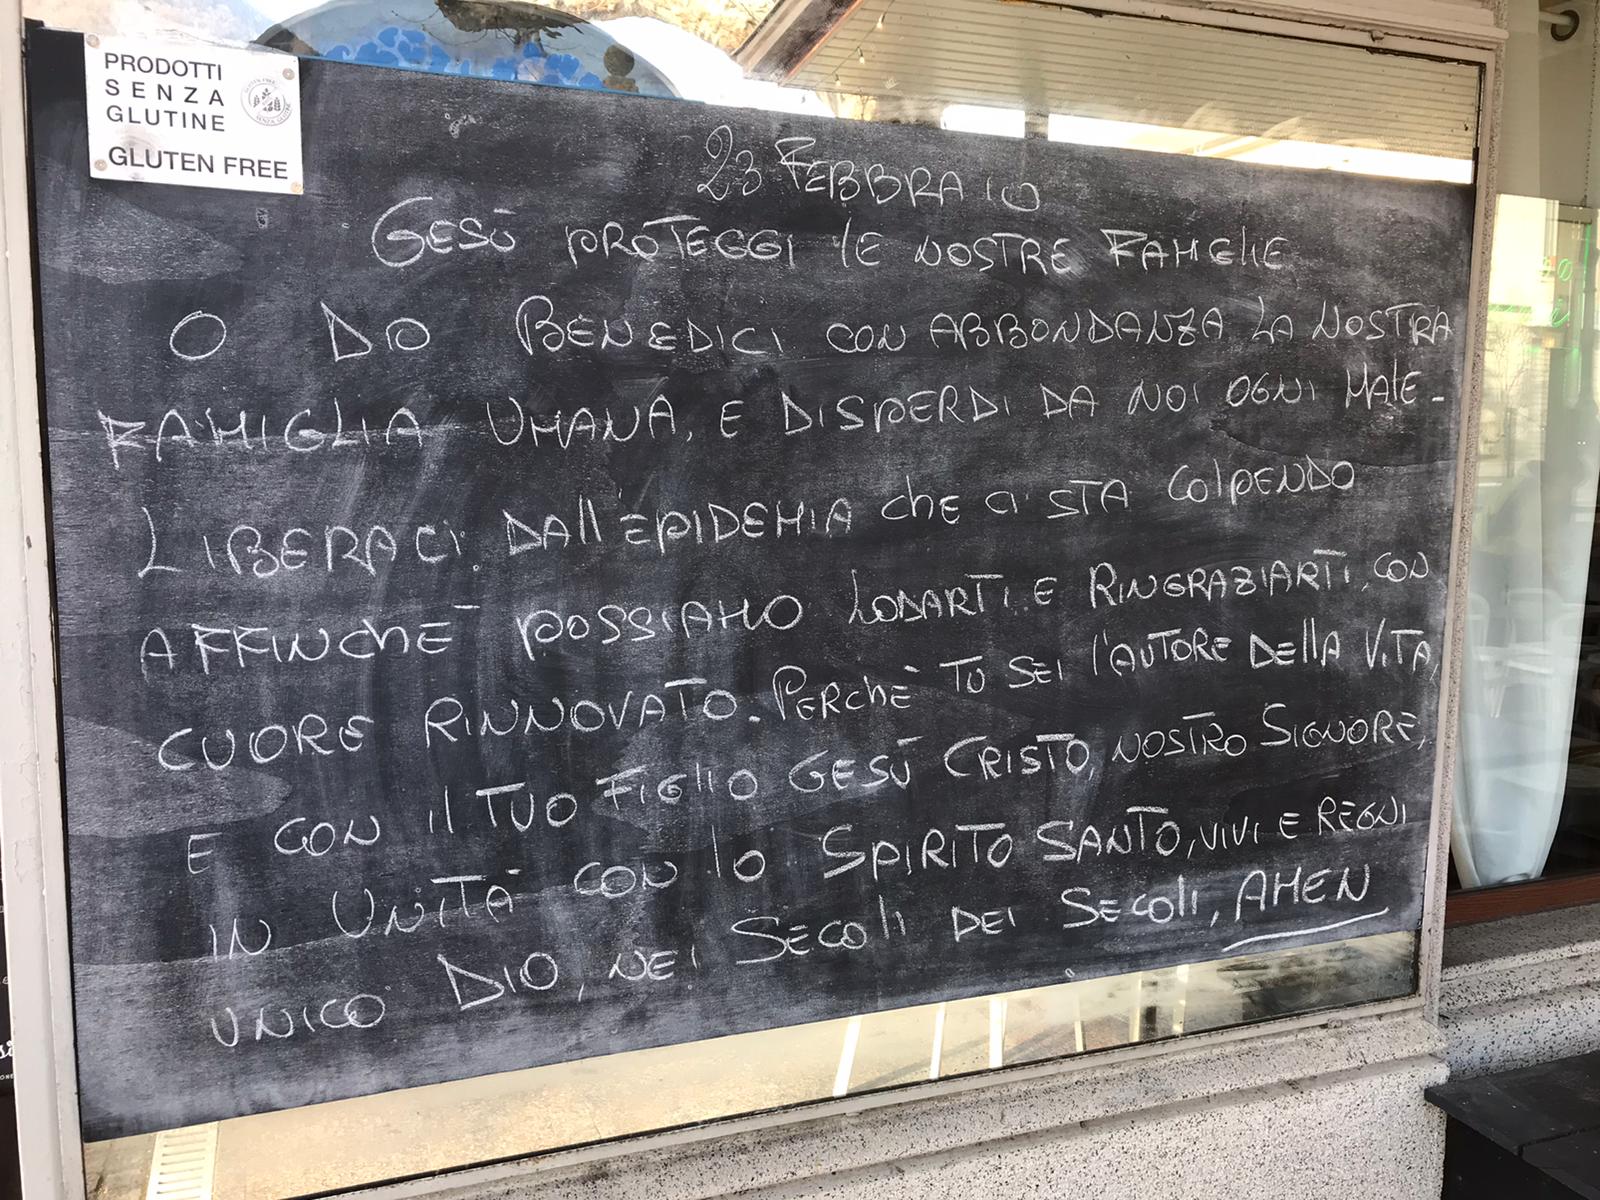 PRODOTTI
SENZA
GLUTINE
GLUTEN FREE
23 FEBBRAIO
GESÙ PROTEGGI lE NOSTRE FAMIGlIE
O DIO BENEDICI CON ABBONDANZA LA NOSTRA
FAMIGLIA UMANA, E DISPERDI DA NOI OGNI MAlE-
LIBERACI DAll'EPIDEMIA chE CI STA COlPENDO
AFFINChÈ POSSIAMO LODARTI E RINGRAZIARTI, CON
CUORE RINNOVATO. PERChÈ TU SEI l'AUTORE DEllA VITA,
E CON Il TUO FIGlIO GESÙ CRISTO, NOSTRO SIGNORE,
IN UNITÀ CON lO SPIRITO SANTO, VIVI E REGNI
UNICO DIO, NEI SECOlI DEI SECOlI, AMEN